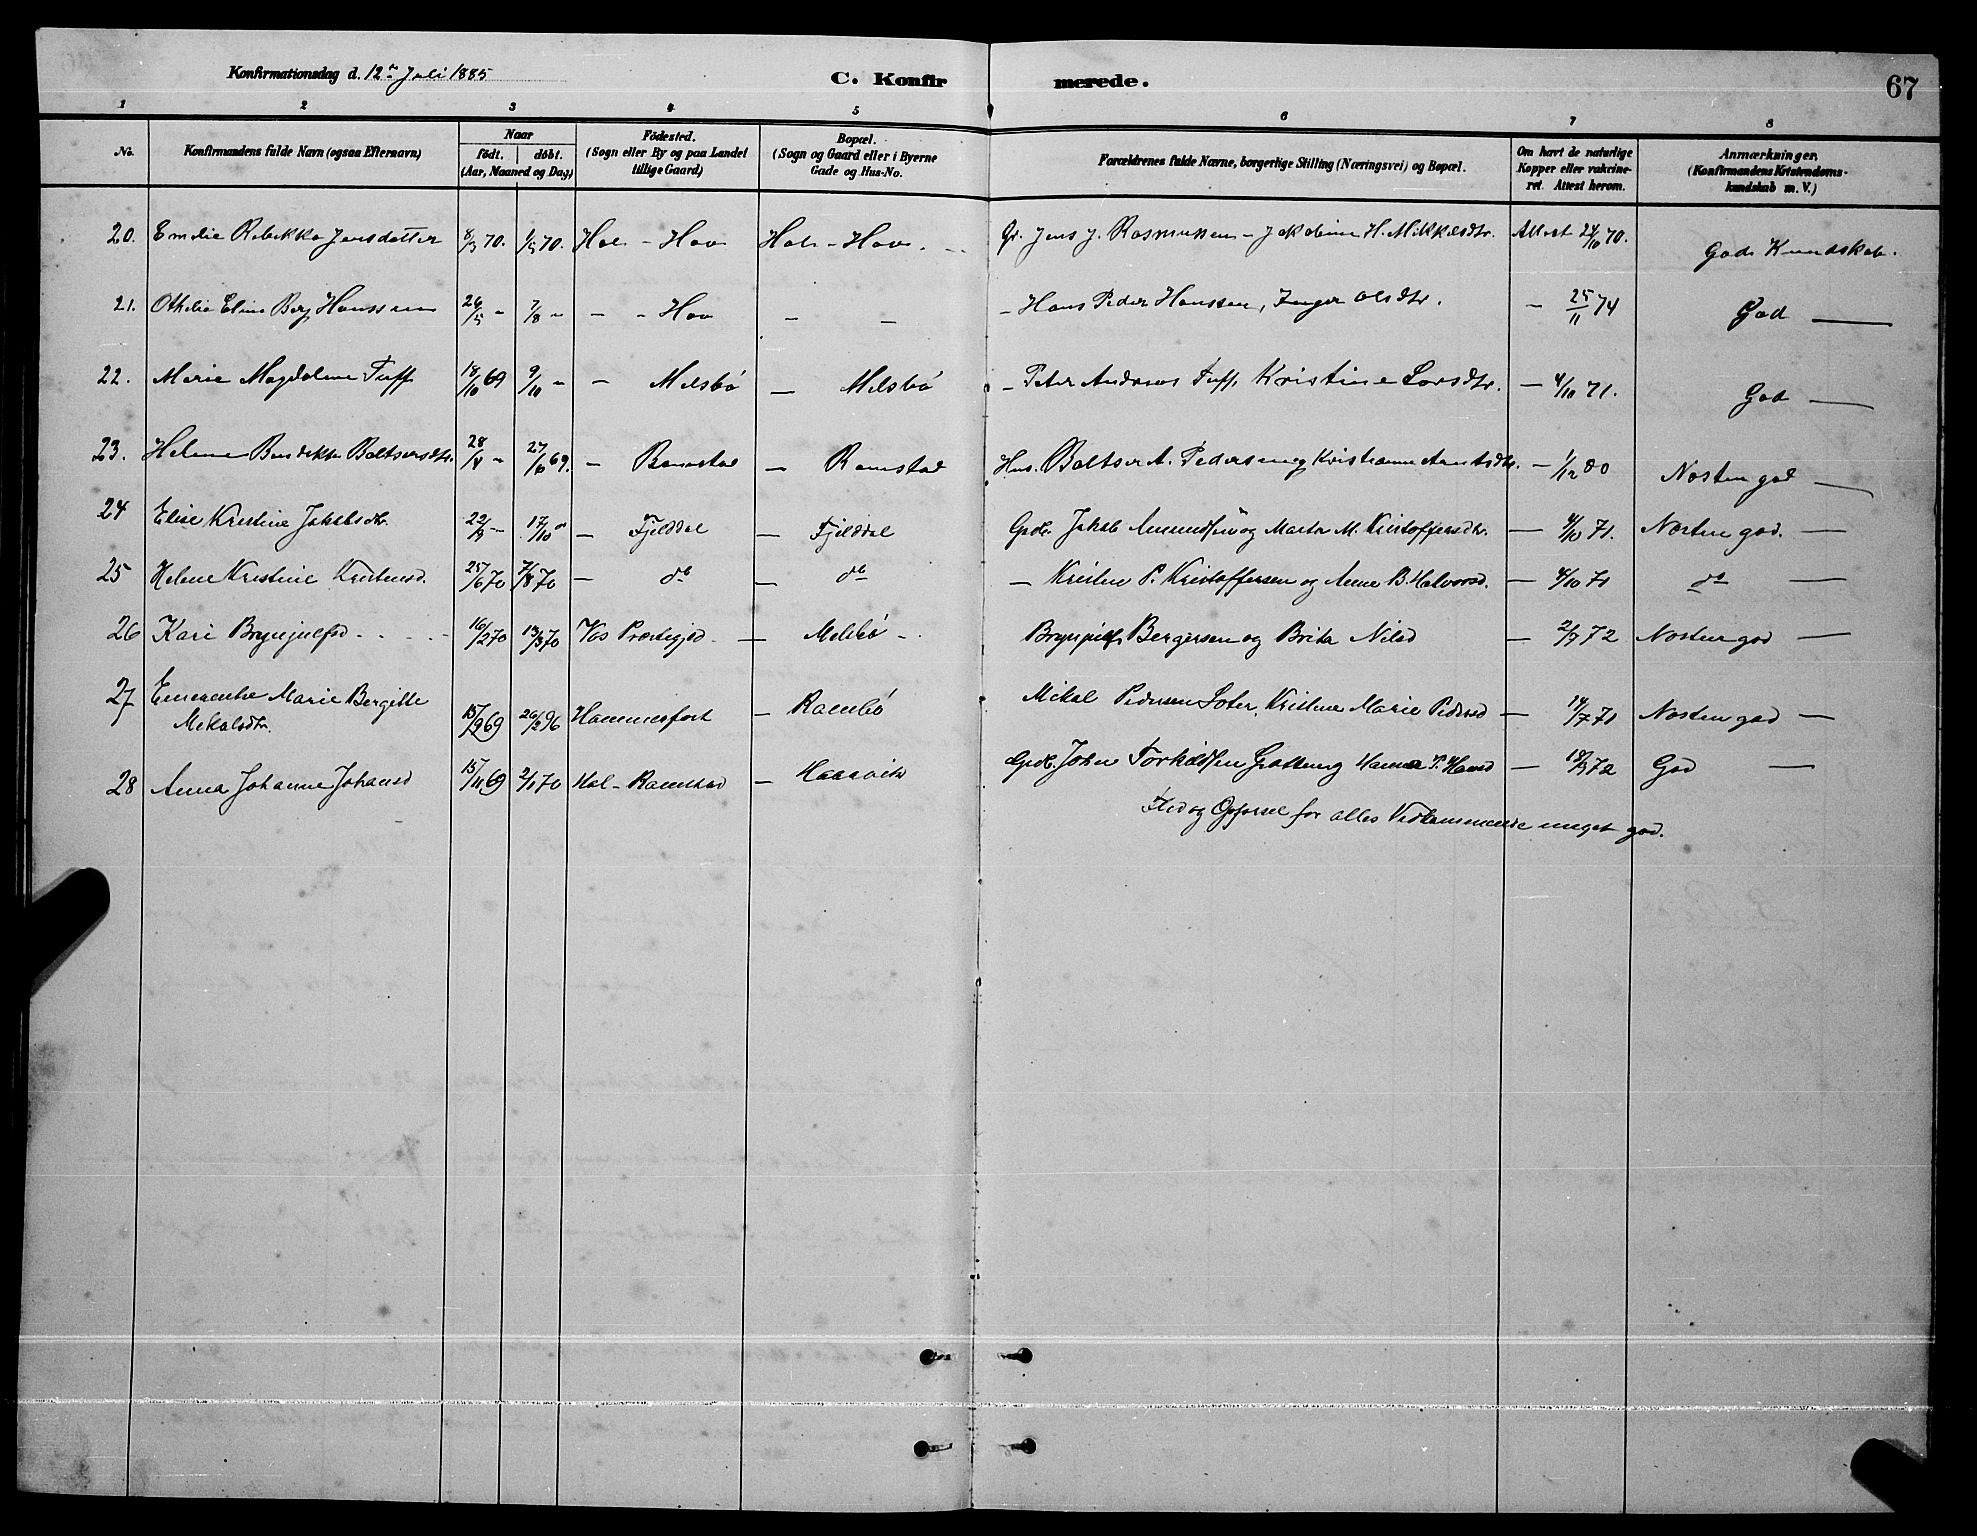 Konfirmationsdag d. 12te Juli 1885
C. Konfirmerede.
67
1 2 3 4 5 6 7 8
No.
Konfirmandens fulde Navn (ogsaa Efternavn)
Naar
födt. döbt.
(Aar, Maaned og Dag)
Födested.
(Sogn eller By og paa Landet
tillige Gaard)
Bopæl.
(Sogn og Gaard eller i Byerne
Gade og Hus-No.
Forældrenes fulde Navne, borgerlige Stilling (Næringsvei) og Bopæl.
Om havt de naturlige
Kopper eller vakcine-
ret. Attest herom.
Anmærkninger.
(Konfirmandens Kristendoms-
kundskab m. V.)
20. Emelie Rebekka Jensdatter 8/3 70. 1/5 70. Hol - Hov Hol - Hov. Gr. Jens J. Rasmussen - Jakobine H. Mikkelsdtr. Attest 24/10 70. Gode Kundskab.
21. Othelie Eline Berg Hanssen 26/5 - 7/8 - - - Hov - - - Hans Peder Hanssen, Inger Olsdtr. - 25/11 74 God —
22. Marie Magdalene Tuff 18/10 69 9/10 - - Melsbö - Melsbö - Peter Andreas Tuff, Kristine Larsdtr. - 4/10 71. God —
23. Helene Bendikte Baltsersdtr. 28/4 - 27/6 69. - Ramstad - Ramstad Hus. Baltser A. Pedersen og Kristianne Arntsdtr. - 1/12 80 Nosten god —
24 Elise Kristine Jakobsdtr. 22/9 - 17/10 - - Fjelddal - Fjelddal Grdb. Jakob Amundsen og Marta M. Kristoffersdtr. - 4/10 71. Nosten god. —
25 Helene Kristine Kristensd. 25/6 70 7/8 70 - do - do - Kristen P. Kristoffersen og Anne B. Halvorsd. - 4/10 71 do —
26 Kari Brynjulfsd 16/2 70 13/3 70 Vos Præstegjd. - Melsbö Brynjulf Bergersen og Brita Nilsd - 2/7 72 Nosten god —
27 Emerentse Marie Bergitte
Mikalsdtr. 15/9 69 26/2 96 Hammerfest - Rambö Mikal Pedersen Soter, Kristine Marie Pedersd - 14/7 71 Nosten god —
28 Anna Johanne Johansd 15/11 69 2/1 70 Hol - Ramstad - Haavik Grdb. Johan Torkildsen Hanna P. Hansd - 18/9 72 God —
Flid og Opförsel for alles Vedkommende meget god.